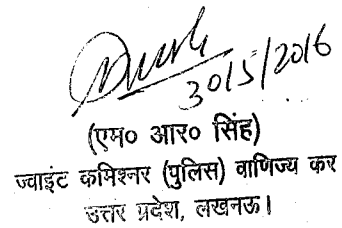 30/5/2016
(एम० आर० सिंह)
ज्वाइंट कमिश्नर (पुलिस) वाणिज्य कर
उत्तर प्रदेश, लखनऊ।